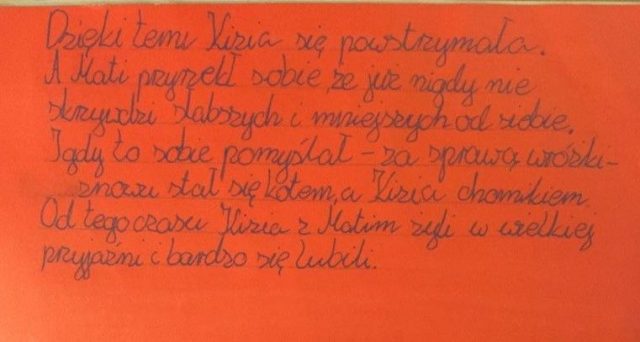 Dzięki temu Kizia się powstrzymała.
A Mati przyrzekł sobie że już nigdy nie
skrzywdzi słabszych i mniejszych od siebie.
I gdy to sobie pomyślał – za sprawą wróżki –
znowu stał się kotem, a Kizia chomikiem.
Od tego czasu Kizia z Matim żyli w wielkiej
przyjaźni i bardzo się lubili.